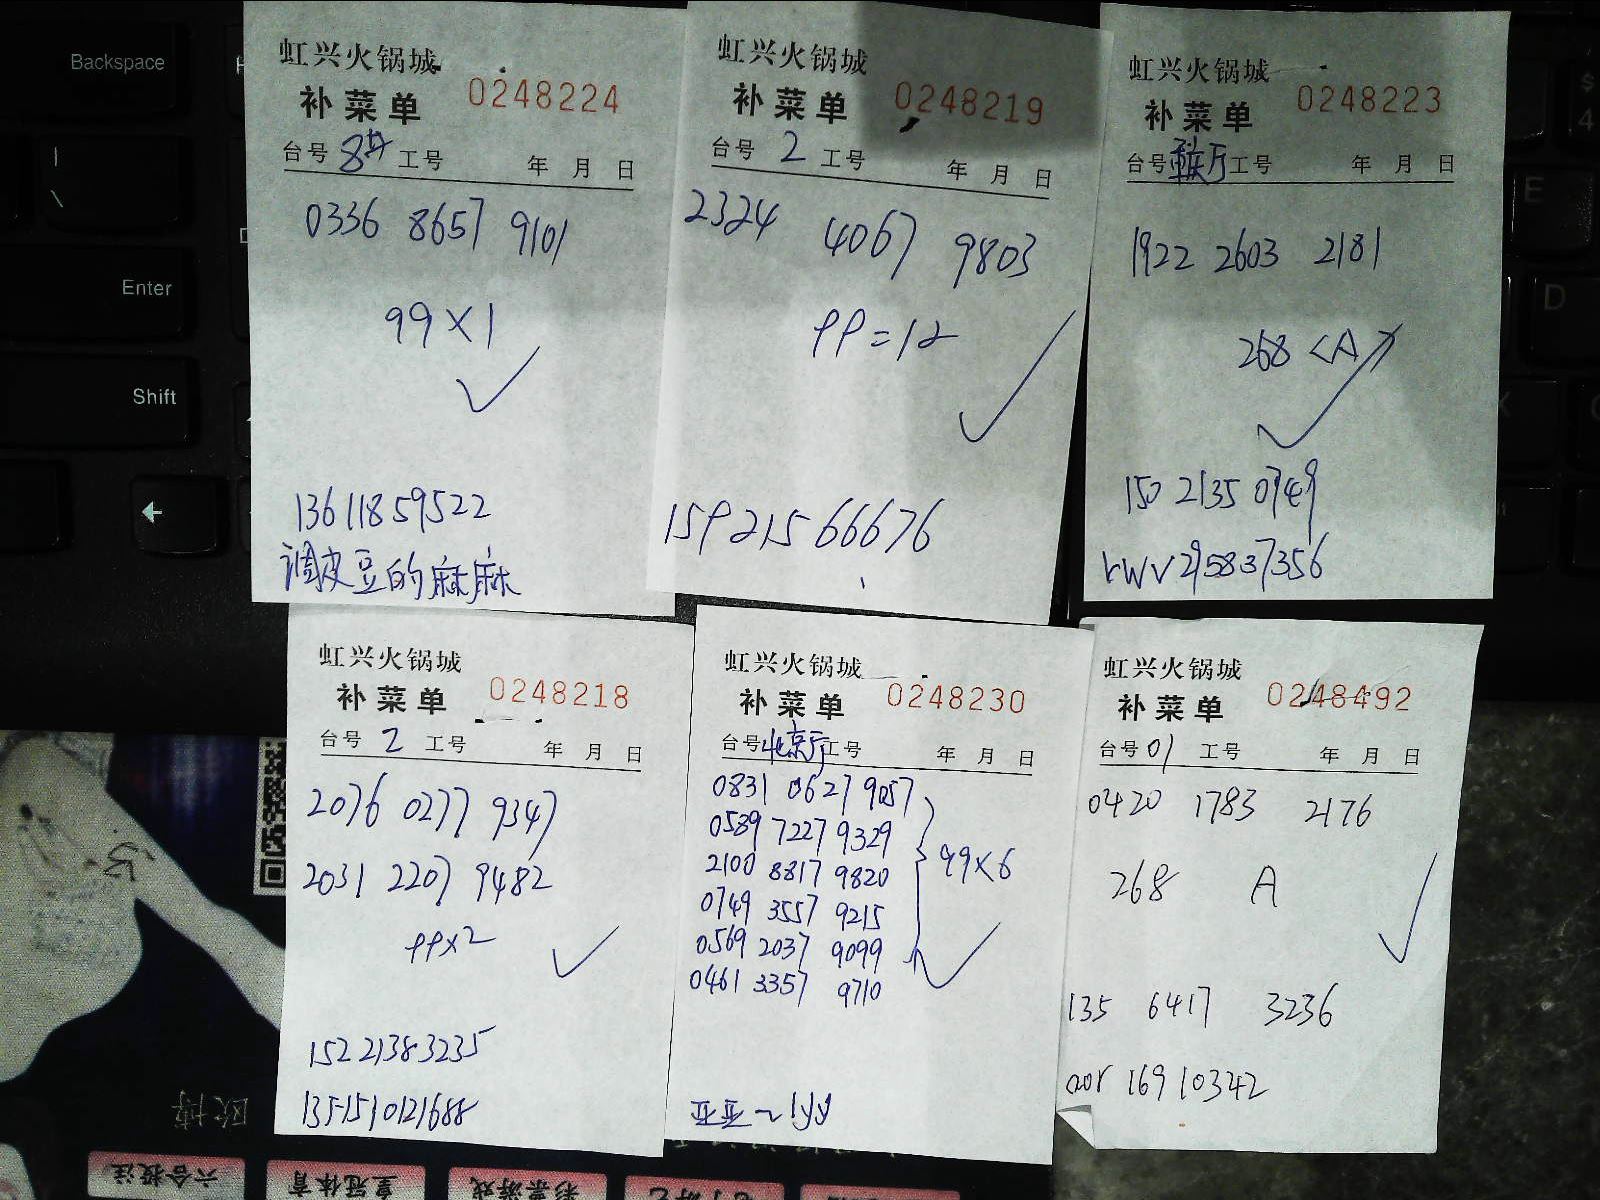 Backspace
Enter
Shift
虹兴火锅城
补菜单 0248224
台号 8 工号 年 月 日
0336 8657 9101
99×1
13611859522
调皮豆的麻麻
虹兴火锅城
补菜单 0248219
台号 2 工号 年 月 日
2324 4067 9803
99=12
15921566676
虹兴火锅城
补菜单 0248223
台号 工号 年 月 日
1922 2603 2181
268 <A>
150 2135 0749
rwv295837356
虹兴火锅城
补菜单 0248218
台号 2 工号 年 月 日
2076 0277 9347
2031 2207 9482
99×2
15221383235
1351510121688
虹兴火锅城
补菜单 0248230
台号 北京厅 工号 年 月 日
0831 0627 9057
0589 7227 9329
2100 8817 9820
99×6
0749 3557 9215
0569 2037 9099
0461 3357 9710
亚亚~lyy
虹兴火锅城
补菜单 0248492
台号 01 工号 年 月 日
0420 1783 2176
268 A
135 6417 3236
aor 16910342
欧博
六合投注
皇冠体育
彩票游戏